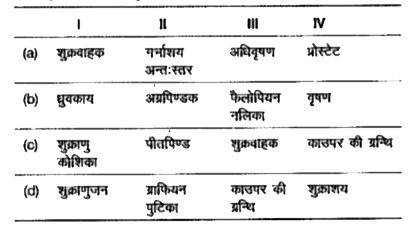 I II III IV
(a) शुक्रवाहक गर्भाशय अन्तःस्तर अधिवृषण प्रोस्टेट
(b) ध्रुवकाय अग्रपिण्डक फैलोपियन नलिका वृषण
(c) शुक्राणु कोशिका पीतपिण्ड शुक्रवाहक काउपर की ग्रन्थि
(d) शुक्राणुजन ग्राफियन पुटिका काउपर की ग्रन्थि शुक्राशय